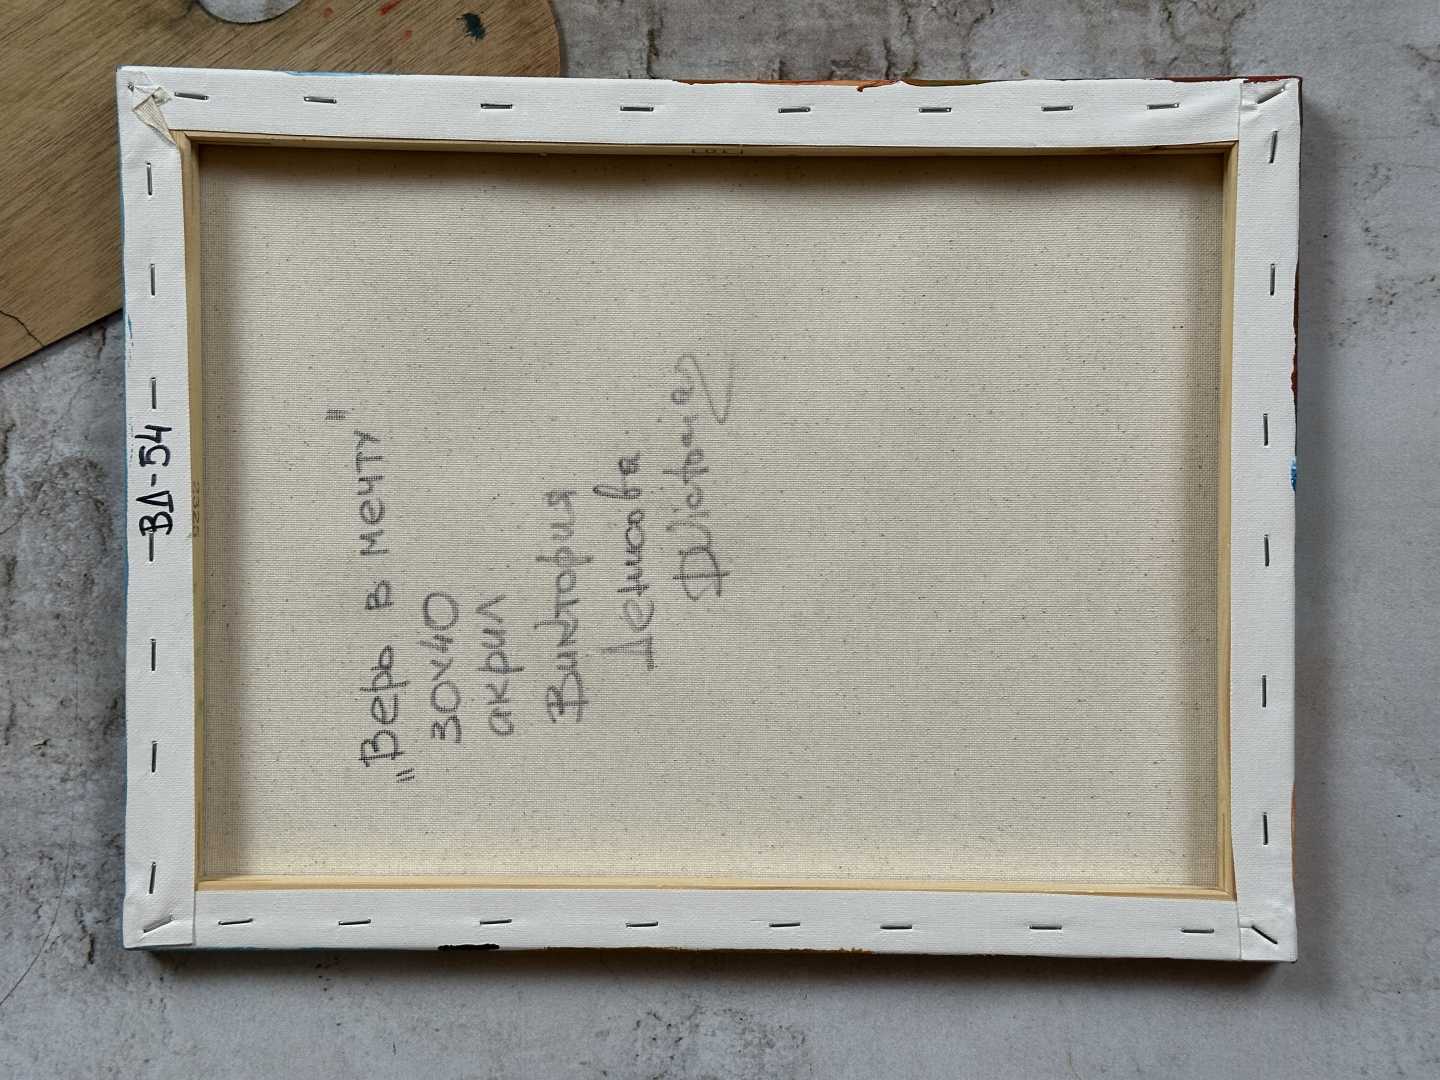 ВД-54
"Верь в мечту"
30х40
акрил
Виктория
Денисова